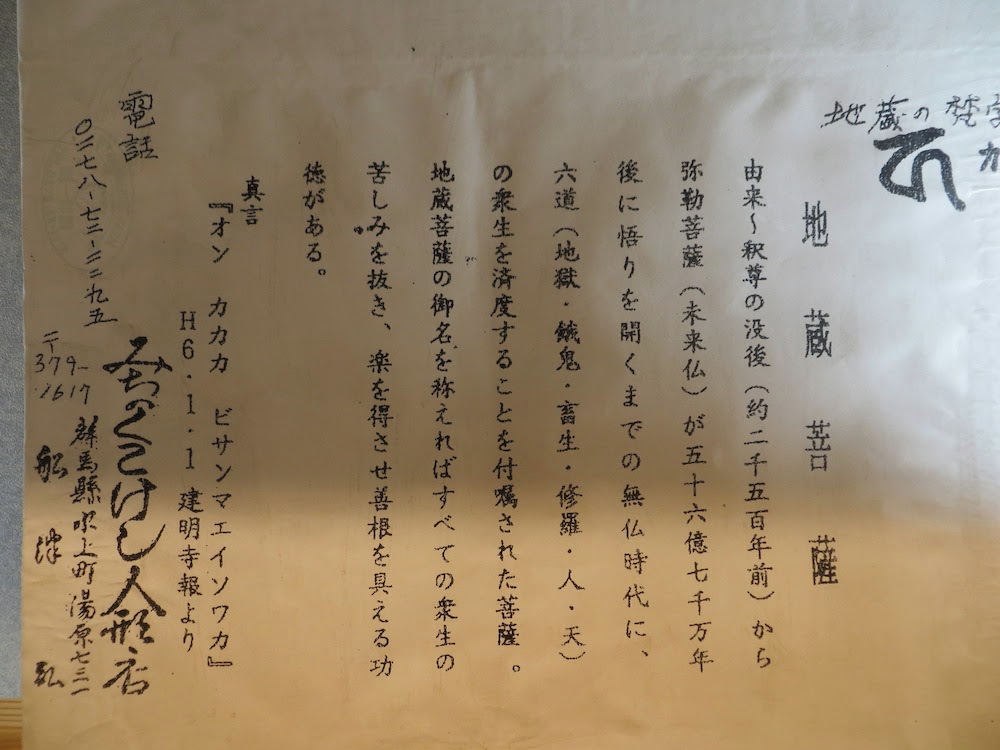 地蔵の梵字
カ
地蔵菩薩
由来～釈尊の没後（約二千五百年前）から
弥勒菩薩（未来仏）が五十六億七千万年
後に悟りを開くまでの無仏時代に、
六道（地獄・餓鬼・畜生・修羅・人・天）
の衆生を済度することを付嘱された菩薩。
地蔵菩薩の御名を称えればすべての衆生の
苦しみを抜き、楽を得させ善根を具える功
徳がある。
真言
『オン　カカカ　ビサンマエイソワカ』
H6・1・1建明寺報より
みちのくこけし人形店
電話
〇二七八-七二-二二九五
群馬縣水上町湯原七三一
〒379-1617
船津弘